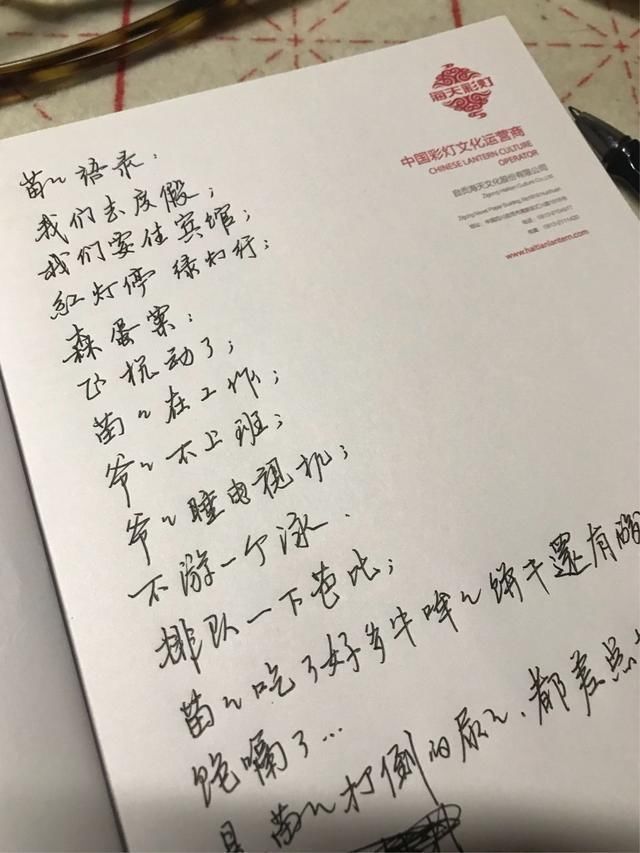 海天彩灯
中国彩灯文化运营商
CHINESE LANTERN CULTURE
OPERATOR
自贡海天文化股份有限公司
Zigong Haitian Culture Co.,Ltd.
www.haitianlantern.com
苗〻语录：
我们去度假；
我们要住宾馆；
红灯停 绿灯行；
森蛋糕；
飞机动了；
苗〻在工作；
爷〻不上班；
爷〻睡电视机；
不游一个泳．
排队一下芭比；
苗〻吃了好多牛哞〻饼干还有
饱嘱了…
是苗〻打倒的尿〻、都差点